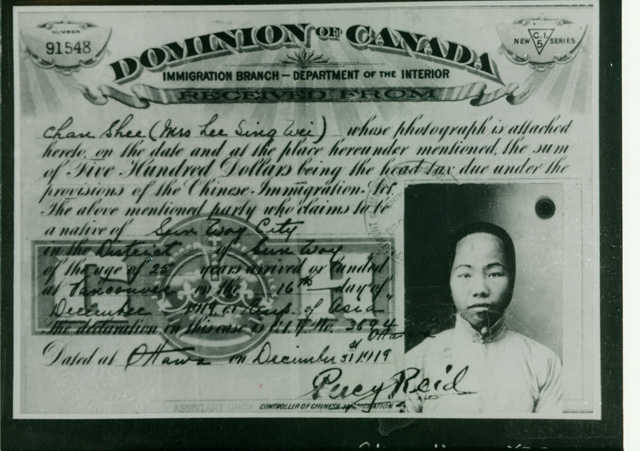 NUMBER
91548
DOMINION OF CANADA
NEW C.I. 5 SERIES
IMMIGRATION BRANCH — DEPARTMENT OF THE INTERIOR
RECEIVED FROM
Chan Shee (Mrs Lee Sing Wei) whose photograph is attached
hereto, on the date and at the place hereunder mentioned, the sum
of Five Hundred Dollars being the head tax due under the
provisions of the Chinese Immigration Act.
The above mentioned party who claims to be
a native of Sun Woy City
in the District of Sun Woy
of the age of 25 years arrived or landed
at Vancouver on the 16th day of
December 1919, ex Emp. of Asia
The declaration in this case is C.I.4. No. 3694
Ottawa
Dated at Ottawa on December 31st 1919
Percy Reid
CONTROLLER OF CHINESE IMMIGRATION